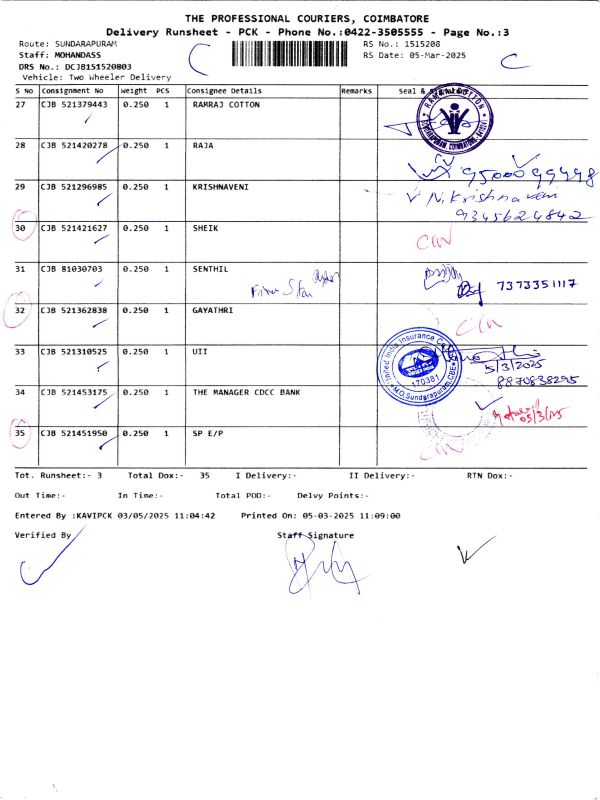 THE PROFESSIONAL COURIERS, COIMBATORE
Delivery Runsheet - PCK - Phone No.:0422-3505555 - Page No.:3
Route: SUNDARAPURAM RS No.: 1515208
Staff: MOHANDASS RS Date: 05-Mar-2025
DRS No.: DCJB151520803
Vehicle: Two Wheeler Delivery
S No Consignment No Weight PCS Consignee Details Remarks Seal &
27 CJB 521379443 0.250 1 RAMRAJ COTTON
28 CJB 521420278 0.250 1 RAJA
9500099498
29 CJB 521296985 0.250 1 KRISHNAVENI
N. Krishnaveni
9345624842
30 CJB 521421627 0.250 1 SHEIK
31 CJB 81030703 0.250 1 SENTHIL
7373351117
32 CJB 521362838 0.250 1 GAYATHRI
33 CJB 521310525 0.250 1 UII
United India Insurance
170381
M.O. Sundarapuram, CBE
5/3/2025
8870838295
34 CJB 521453175 0.250 1 THE MANAGER CDCC BANK
35 CJB 521451950 0.250 1 SP E/P
Tot. Runsheet:- 3 Total Dox:- 35 I Delivery:- II Delivery:- RTN Dox:-
Out Time:- In Time:- Total POD:- Delvy Points:-
Entered By :KAVIPCK 03/05/2025 11:04:42 Printed On: 05-03-2025 11:09:00
Verified By Staff Signature